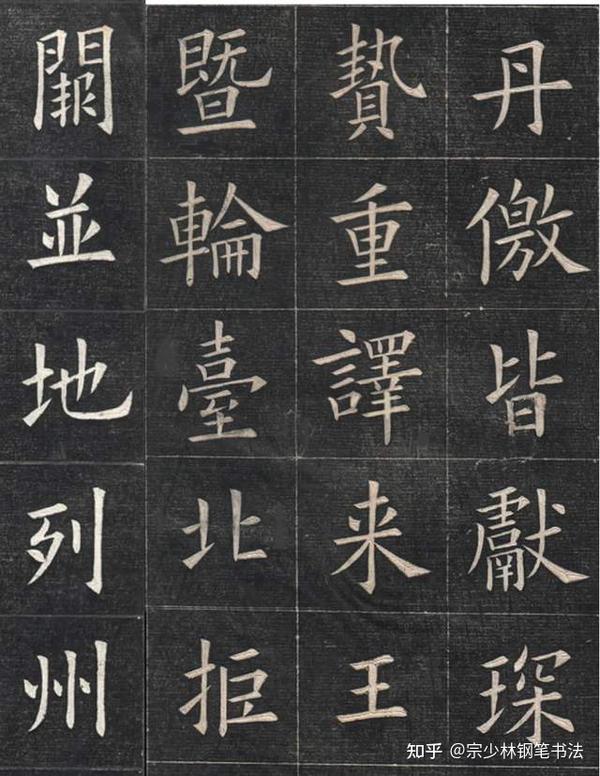 丹儌皆獻琛
贄重譯来王
暨輪臺北拒
闕並地列州
知乎 @宗少林钢笔书法